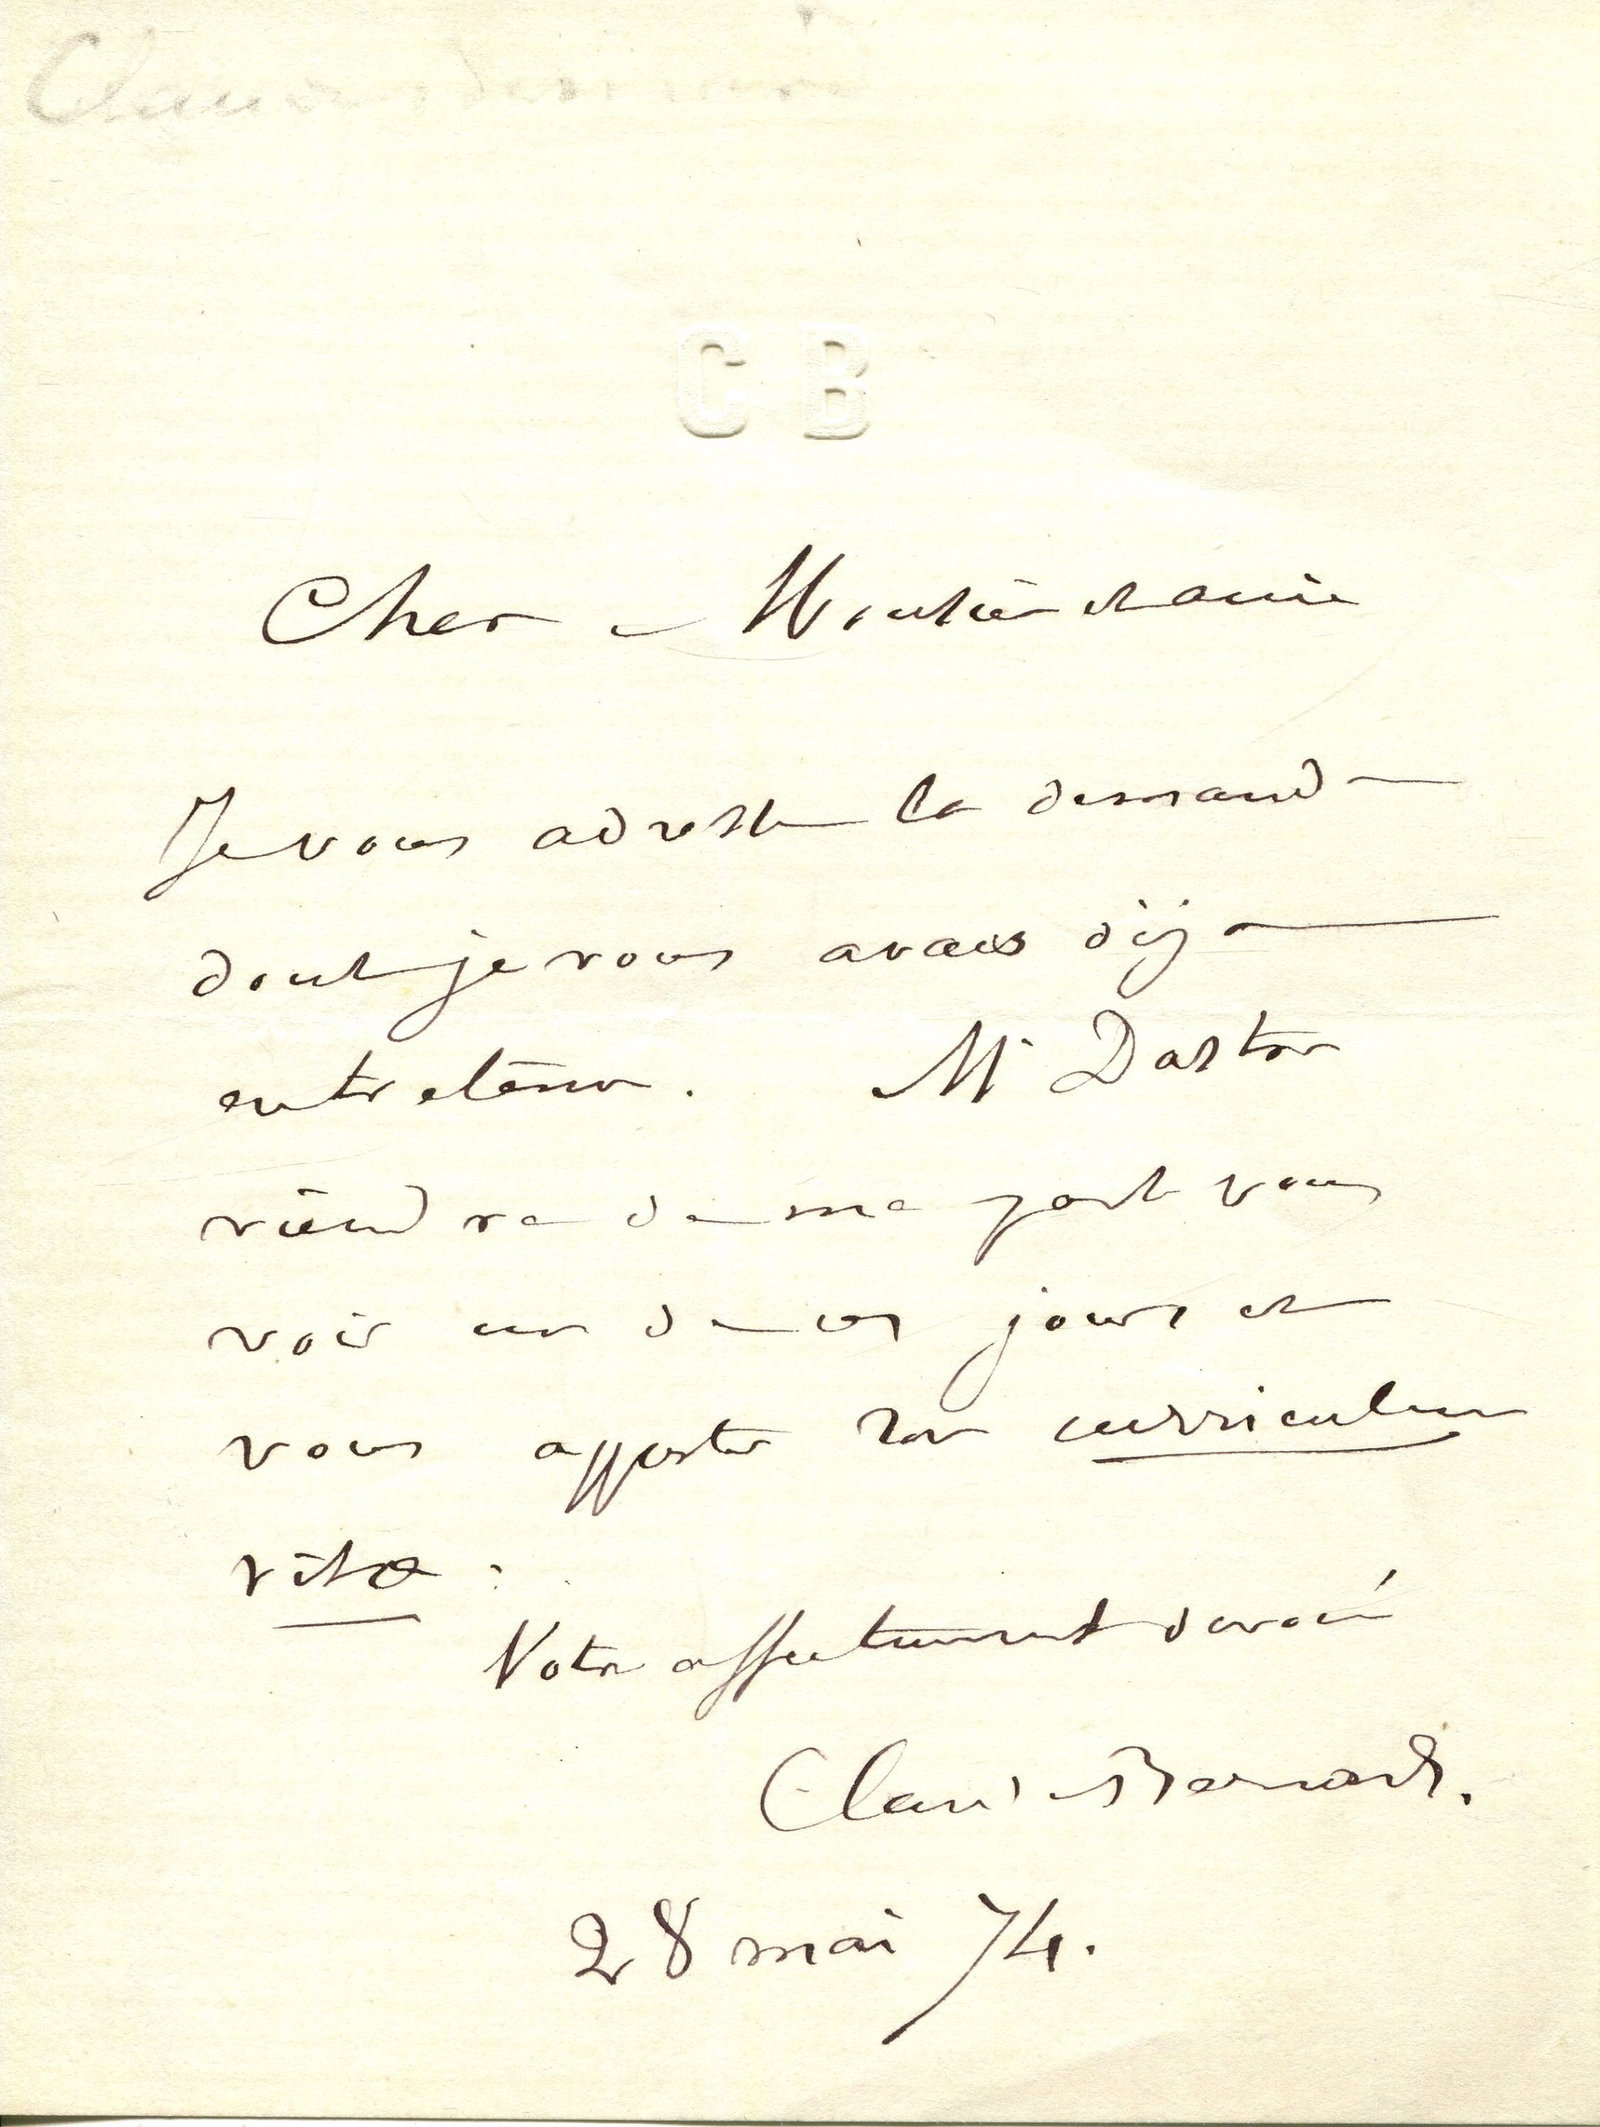 Claude Bernard
C B
Cher Monsieur et ami
Je vous adresse la demande
dont je vous avais déjà
entretenu. Mr Dastre
viendra de ma part vous
voir un de ces jours et
vous apporter son curriculum
vitæ.
Votre affectueusement dévoué
Claude Bernard.
28 mai 74.